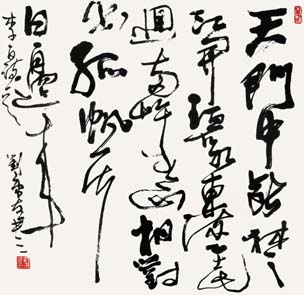 天門中斷楚
江開碧水東流至此
迴兩岸青山相對
出孤帆一片
日邊來
李白詩
劉